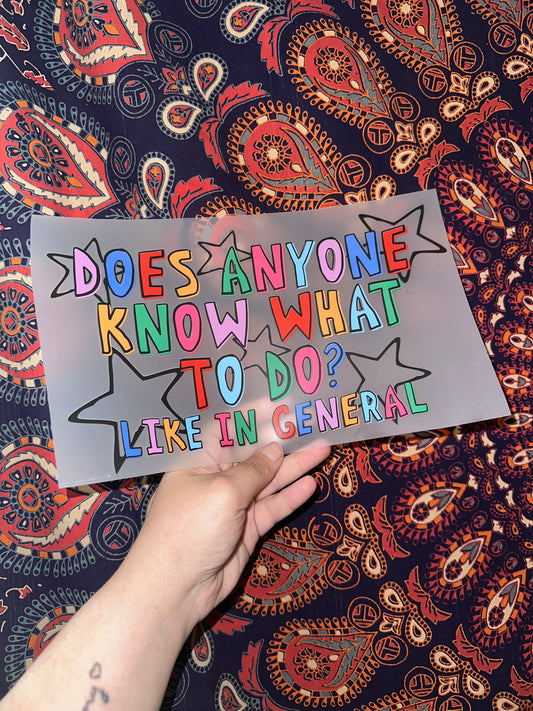 DOES ANYONE
KNOW WHAT
TO DO?
LIKE IN GENERAL